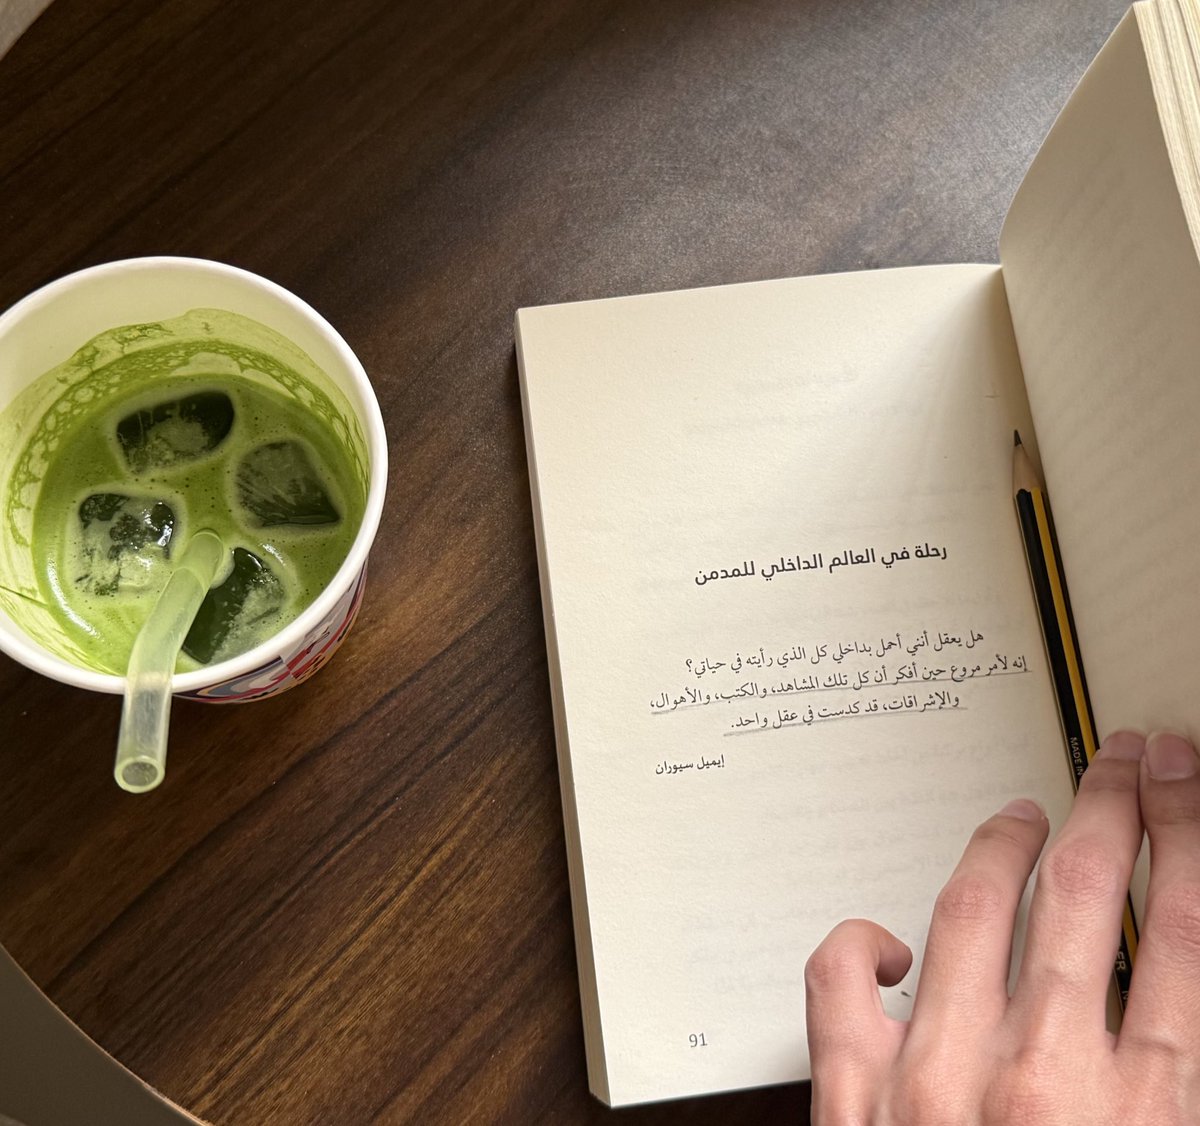 رحلة في العالم الداخلي للمدمن
هل يعقل أنني أحمل بداخلي كل الذي رأيته في حياتي؟
إنه لأمر مروع حين أفكر أن كل تلك المشاهد، والكتب، والأهوال،
والإشراقات، قد كدست في عقل واحد.
إيميل سيوران
91
MADE IN